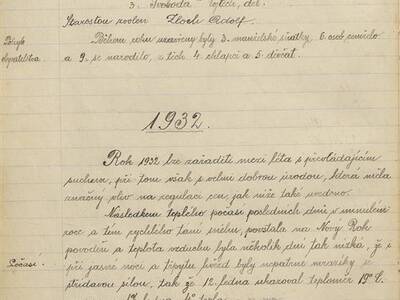 3. Svoboda - Bylich, děl.
Starostou zvolen Zloch Adolf.
Pohyb
obyvatelstva
Během roku uzavřeny byly 3 manželské sňatky, 6 osob zemřelo
a 9 se narodilo, z těch 4 chlapci a 5 děvčat.
1932.
Rok 1932 lze zařaditi mezi léta s převládajícím
suchem, při tom však s velmi dobrou úrodou, která měla
značný vliv na regulaci cen, jak níže také uvedeno.
Počasí.
Následkem teplého počasí posledních dnů v minulém
roce a tím rychlého tání sněhu, povstala na Nový Rok
povodeň a teplota vzduchu byla několik dní tak nízká, že i
při jasné noci a třpytu hvězd byly nepatrné mrazíky se
střídavou silou, tak že 12. ledna ukazoval teploměr 19° C.